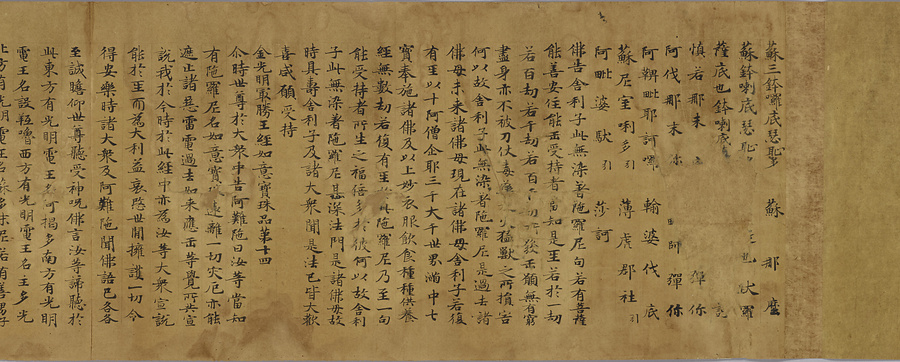 蘇三鈴囉底瑟恥 蘇那麼
蘇鈴喇底瑟恥
薩底也鈴喇底
慎若那末
阿伐那末你 師彈你
阿鞞毗耶訶囉 輸婆伐底
蘇尼室唎多引 薄虎郡社引
阿毗婆馱引 莎訶
佛告舍利子此無染著陁羅尼句若有菩薩
能善安住能正受持者當知是王若於一劫
若百劫若千劫若百千劫所發正願無有窮
盡身亦不被刀仗毒藥水火猛獸之所損害
何以故舍利子此無染著陁羅尼是過去諸
佛母未來諸佛母現在諸佛母舍利子若復
有王以十阿僧企耶三千大千世界滿中七
寶奉施諸佛及以上妙衣服飲食種種供養
經無數劫若復有王於此陁羅尼乃至一句
能受持者所生之福倍多於彼何以故舍利
子此無染著陁羅尼甚深法門是諸佛母故
時具壽舍利子及諸大衆聞是法已皆大歡
喜咸願受持
金光明最勝王經如意寶珠品第十四
尒時世尊於大衆中告阿難陁曰汝等當知
有陁羅尼名如意寶珠遠離一切灾厄亦能
遮止諸惡雷電過去如來應正等覺所共宣
說我於今時於此經中亦為汝等大衆宣說
能於王而為大利益哀愍世間擁護一切令
得安樂時諸大衆及阿難陁聞佛語已各各
至誠瞻仰世尊聽受神呪佛言汝等諦聽於
此東方有光明電王名阿揭多南方有光明
電王名設羝嚕西方有光明電王名主多光
北方有光明電王名蘇多末尼若有善男子